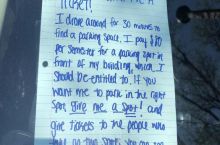 TICKET!
I drove around for 30 minutes to
find a parking space. I pay $
per semester for a parking spot in
front of my building, which I
should be entitled to. If you
want me to park in the right
spot, give me a spot! and
give tickets to the people who
take up two spots. You can see